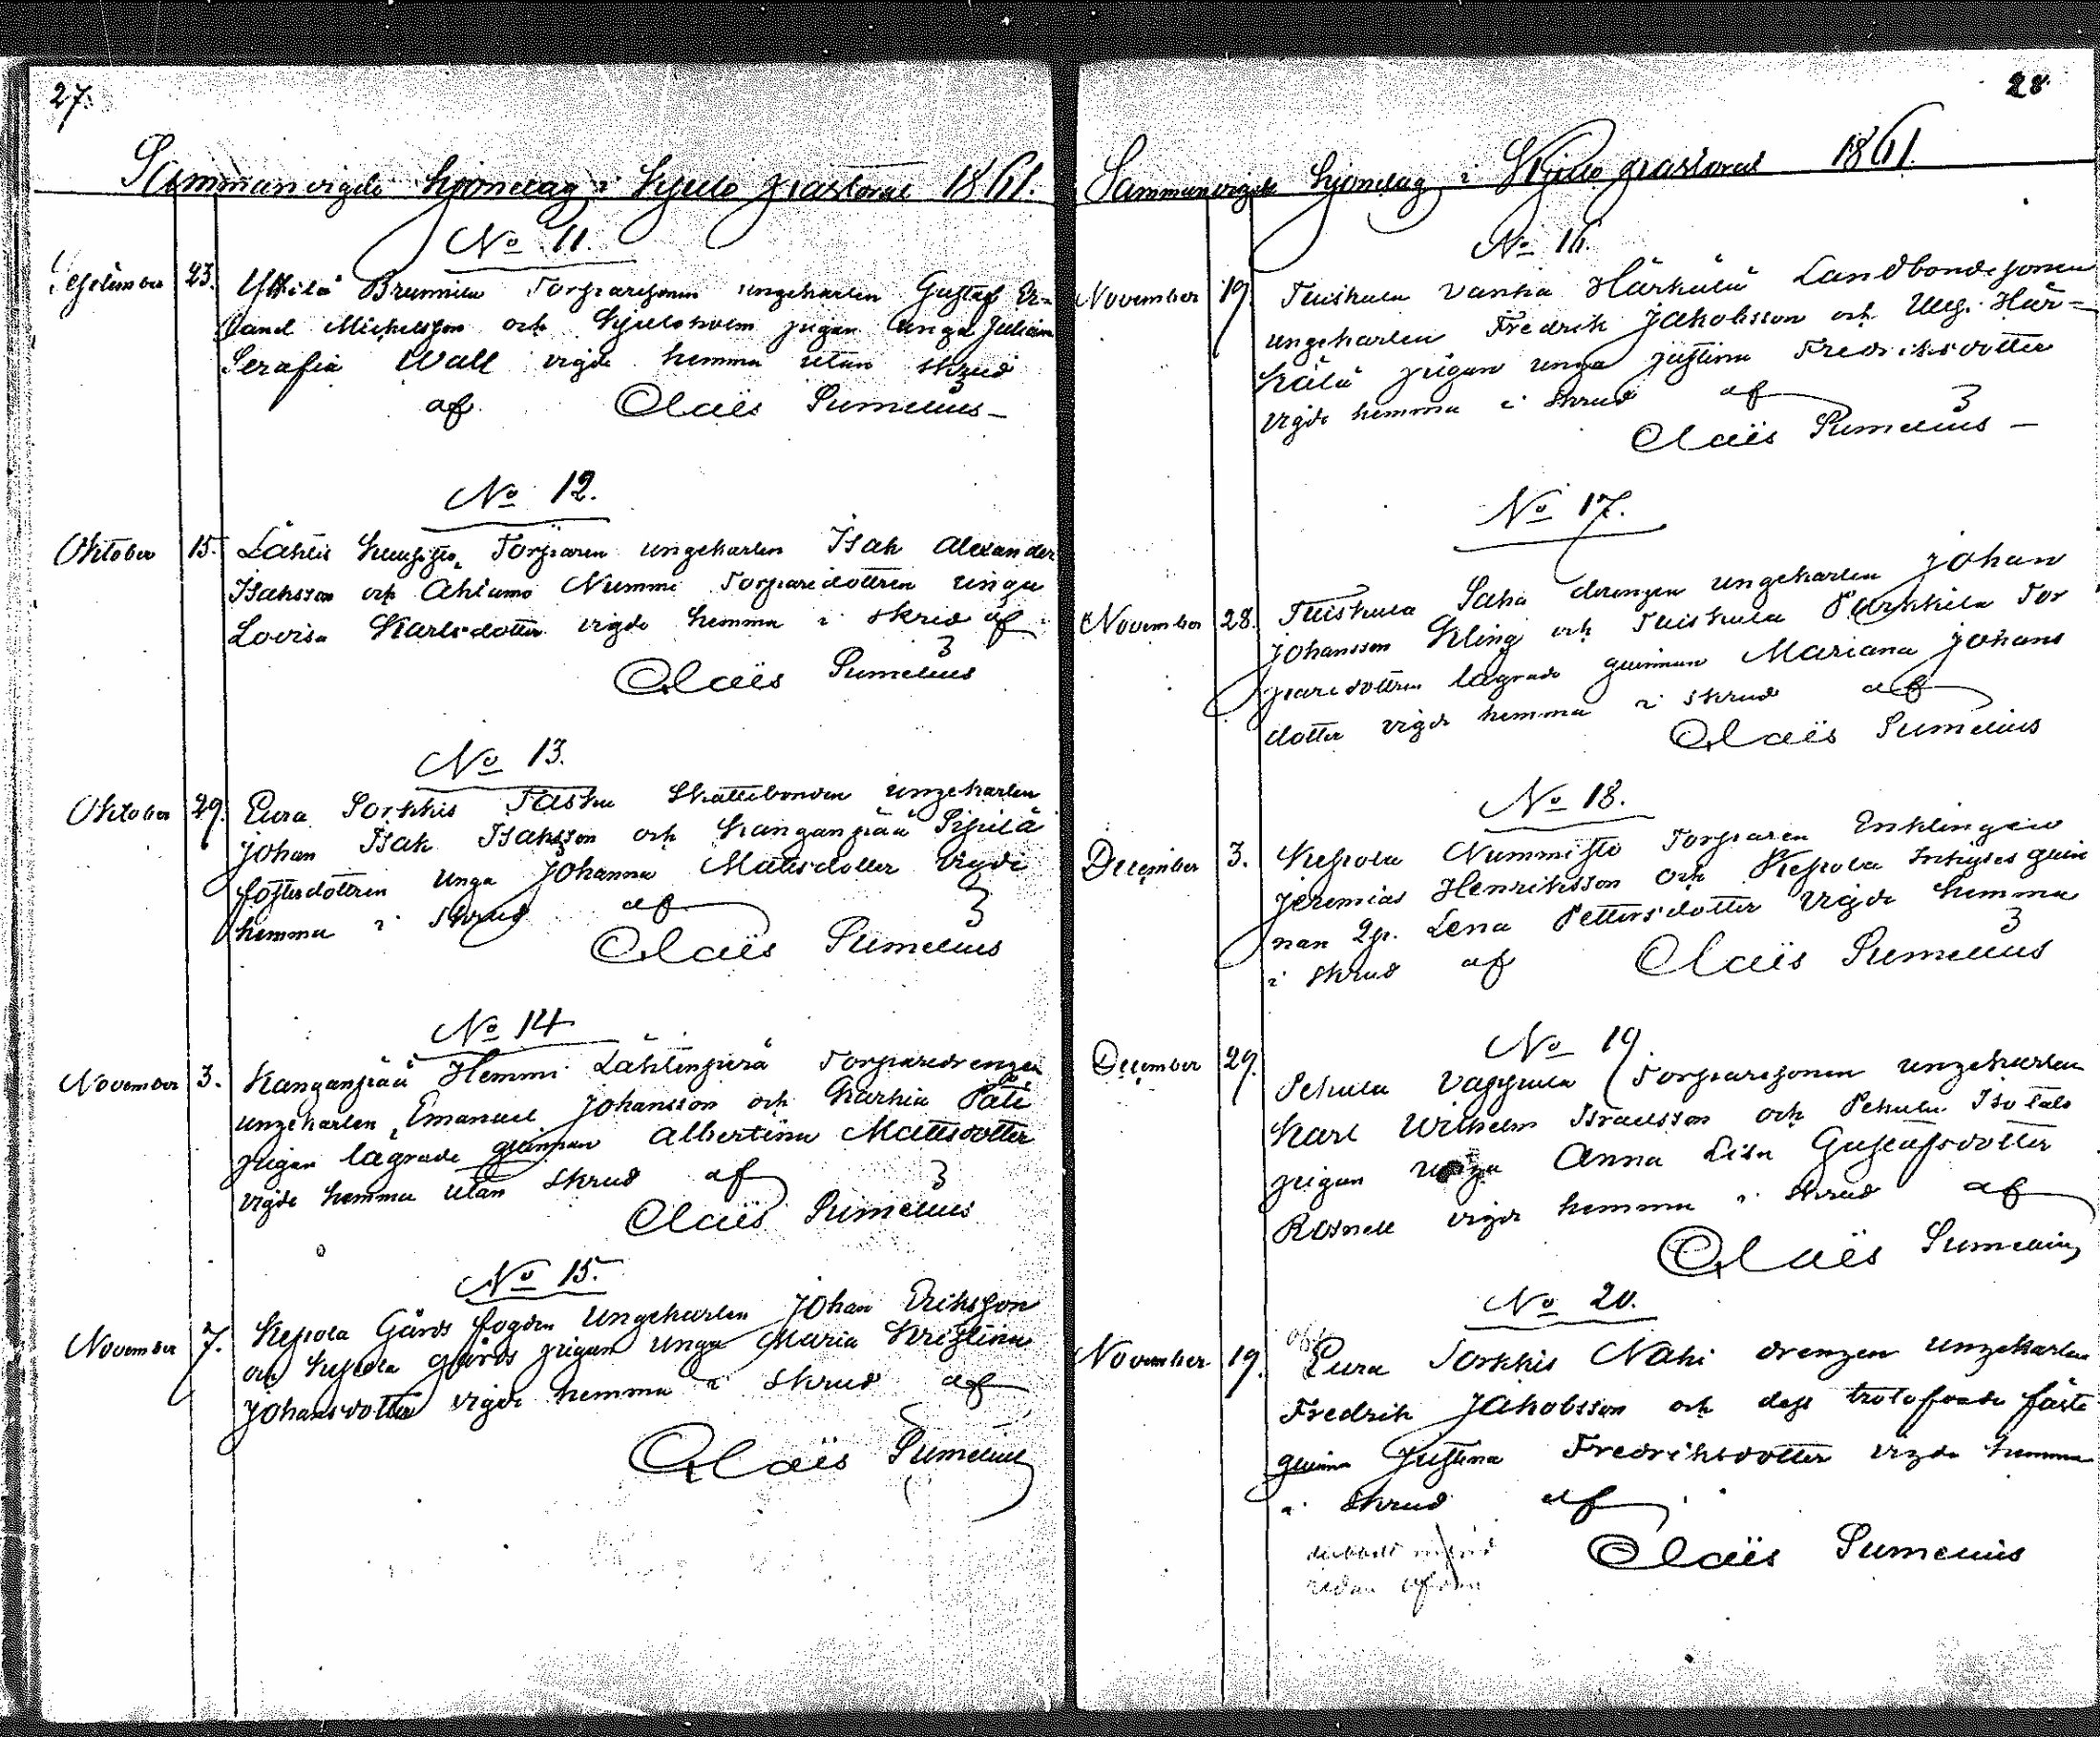 27.
Sammanvigde hjonelag i Kjulo pastorat 1861.
No 11.
September 23. Yttilä Brunnila Torparesonen ungekarlen Gustaf Er=
land Michelsson och Kjuloholm pigan unga Julian
Serafia Wall vigde hemma utan skrud
af Claës Sumelius
No 12.
Oktober 15. Lähtis Torparen ungekarlen Isak Alexander
Isaksson och Ahlamo Nummi Torparedottren unga
Lovisa Karlsdotter vigde hemma i skrud af
Claës Sumelius
No 13.
Oktober 29. Eura Sorkkis Tasku Skattebonden ungekarlen
Johan Isak Isaksson och Kanganpää Sipilä
fosterdottren unga Johanna Mattsdotter vigde
hemma i skrud af
Claës Sumelius
No 14
November 3. Kanganpää Hemmi Lähtinperä Torparedrengen
ungekarlen Emanuel Johansson och Karhia Pati
pigan lägrade quinnan Albertina Mattsdotter
vigde hemma utan skrud af
Claës Sumelius
No 15.
November 7. Kepola Gårds fogden Ungekarlen Johan Eriksson
och Kepola gårds pigan unga Maria Kristina
Johansdotter vigde hemma i skrud af
Claës Sumelius
28
Sammanvigde hjonelag i Kjulo pastorat 1861.
No 16.
November 19. Tuiskula Vanha Härkälä Landbondesonen
ungekarlen Fredrik Jakobsson och Ung. Här=
kälä pigan unga Justina Fredriksdotter
vigde hemma i skrud af
Claës Sumelius
No 17.
November 28. Tuiskula Saha drengen ungekarlen Johan
Johansson Kling och Tuiskula Pärkkilä Tor
paredottren lägrade quinnan Mariana Johans
dotter vigde hemma i skrud af
Claës Sumelius
No 18.
December 3. Kepola Nummisto Torparen Enklingen
Jeremias Henriksson och Kepola Inhyses quin
nan 2p. Lena Pettersdotter vigde hemma
i skrud af Claës Sumelius
No 19
December 29. Pehula Vappula Torparesonen ungekarlen
Karl Wilhelm Israelsson och Pehula Isotalo
pigan unga Anna Lisa Gustafsdotter
Rosnell vigde hemma i skrud af
Claës Sumelius
No 20.
November 19. Eura Sorkkis Nahi drengen ungekarlen
Fredrik Jakobsson och dess trolofvade fäste
quinna Justina Fredriksdotter vigde hemma
i skrud af
Claës Sumelius
redan ofvan